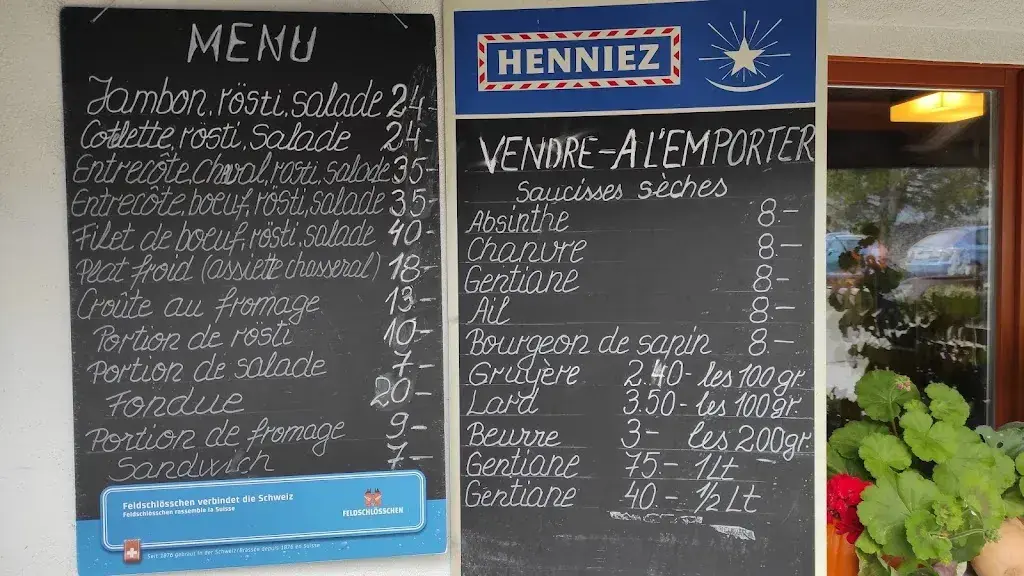 MENU
Jambon, rösti, salade 24.-
Cotelette, rösti, salade 24.-
Entrecôte, cheval, rösti, salade 35.-
Entrecôte, boeuf, rösti, salade 35.-
Filet de boeuf, rösti, salade 40.-
Plat froid (assiette chasseral) 18.-
Croûte au fromage 13.-
Portion de rösti 10.-
Portion de salade 7.-
Fondue 20.-
Portion de fromage 9.-
Sandwich 7.-
Feldschlösschen verbindet die Schweiz
Feldschlösschen rassemble la Suisse
FELDSCHLÖSSCHEN
Seit 1876 gebraut in der Schweiz/Brassée depuis 1876 en Suisse
HENNIEZ
VENDRE - A L'EMPORTER
Saucisses sèches
Absinthe 8.-
Chanvre 8.-
Gentiane 8.-
Ail 8.-
Bourgeon de sapin 8.-
Gruyère 2.40- les 100gr.
Lard 3.50- les 100gr.
Beurre 3- les 200gr
Gentiane 75- 1Lt -
Gentiane 40- ½Lt